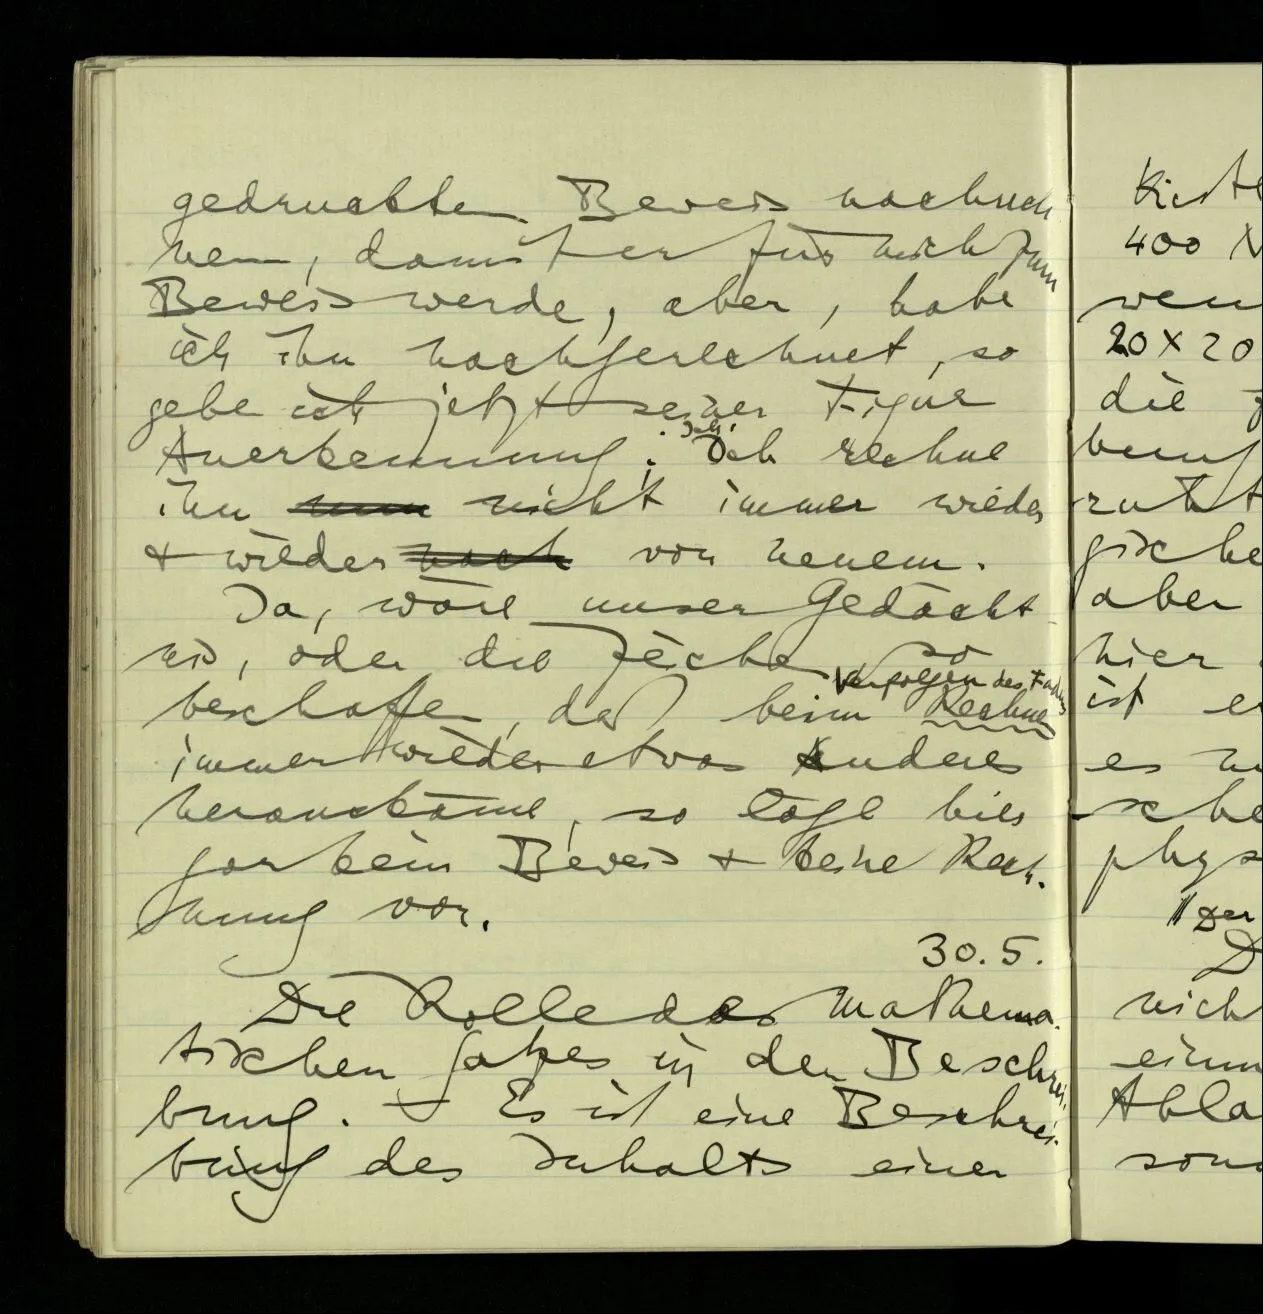 gedruckten Beweis nachrech
nen, damit er für mich zum
Beweis werde, aber, habe
ich ihn nachgerechnet, so
gebe ich jetzt seiner Figur
Anerkennung; d.h.
Ich rechne
ihn nun nicht immer wieder
& wieder nach von neuem.
Ja, wäre unser Gedächt-
nis, oder die Zeichen so
Verfolgen des Fadens
beschaffen, daß beim Rechnen
immer wieder etwas Anderes
herauskäme, so läge hier
gar kein Beweis & keine Rech-
nung vor.
30.5.
Die Rolle des Mathema-
tischen Satzes in der Beschrei-
bung. – Es ist eine Beschrei-
bung des Inhalts einer
Kiste
400
20 x 20
die
aber
hier
ist
es
Der